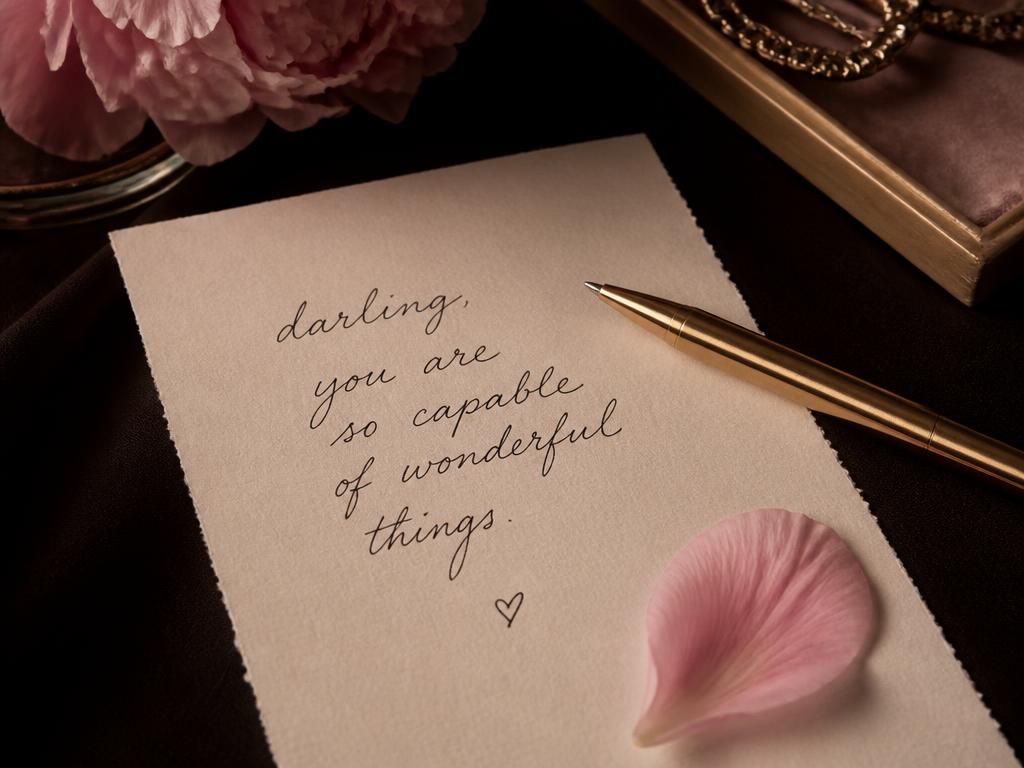 darling,
you are
so capable
of wonderful
things.
♡